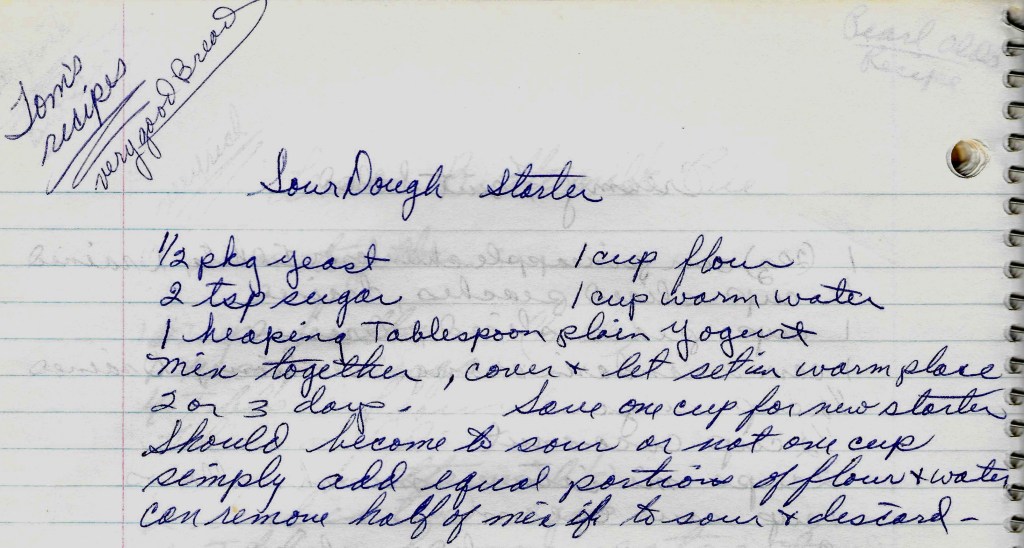 Tom's
recipes
very good Bread
Sour Dough Starter
1/2 pkg yeast 1 cup flour
2 tsp sugar 1 cup warm water
1 heaping Tablespoon plain Yogurt
mix together, cover + let set in warm place
2 or 3 days. Save one cup for new starter
Should become to sour or not one cup
simply add equal portions of flour + water
can remove half of mix if to sour + discard -